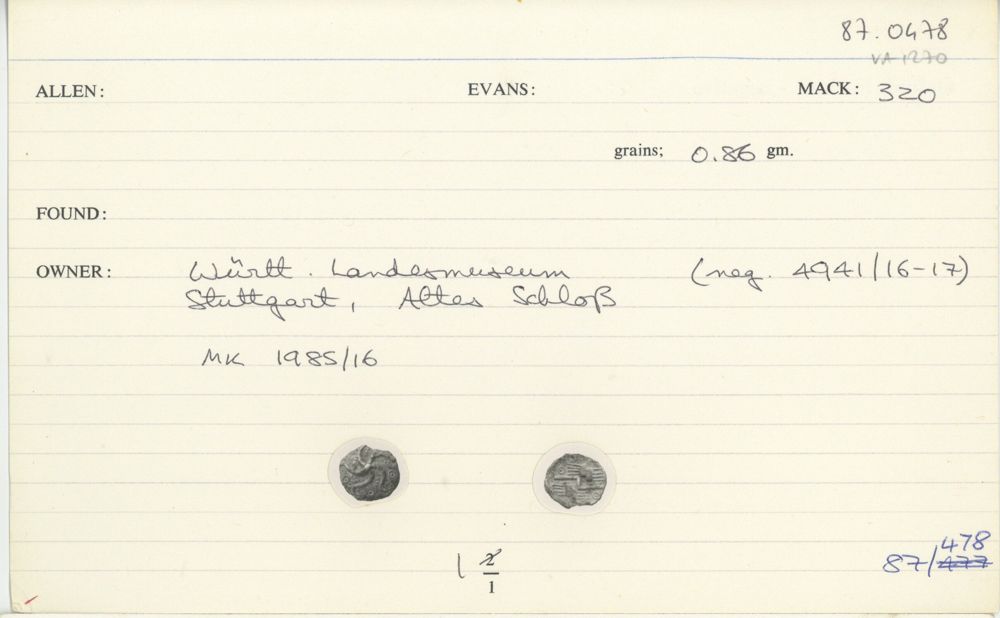 87.0478
VA 1270
ALLEN: EVANS: MACK: 320
grains; 0.86 gm.
FOUND:
OWNER: Württ. Landesmuseum (neg. 4941/16-17)
Stuttgart, Altes Schloß
MK 1985/16
1 2/1
478
87/477